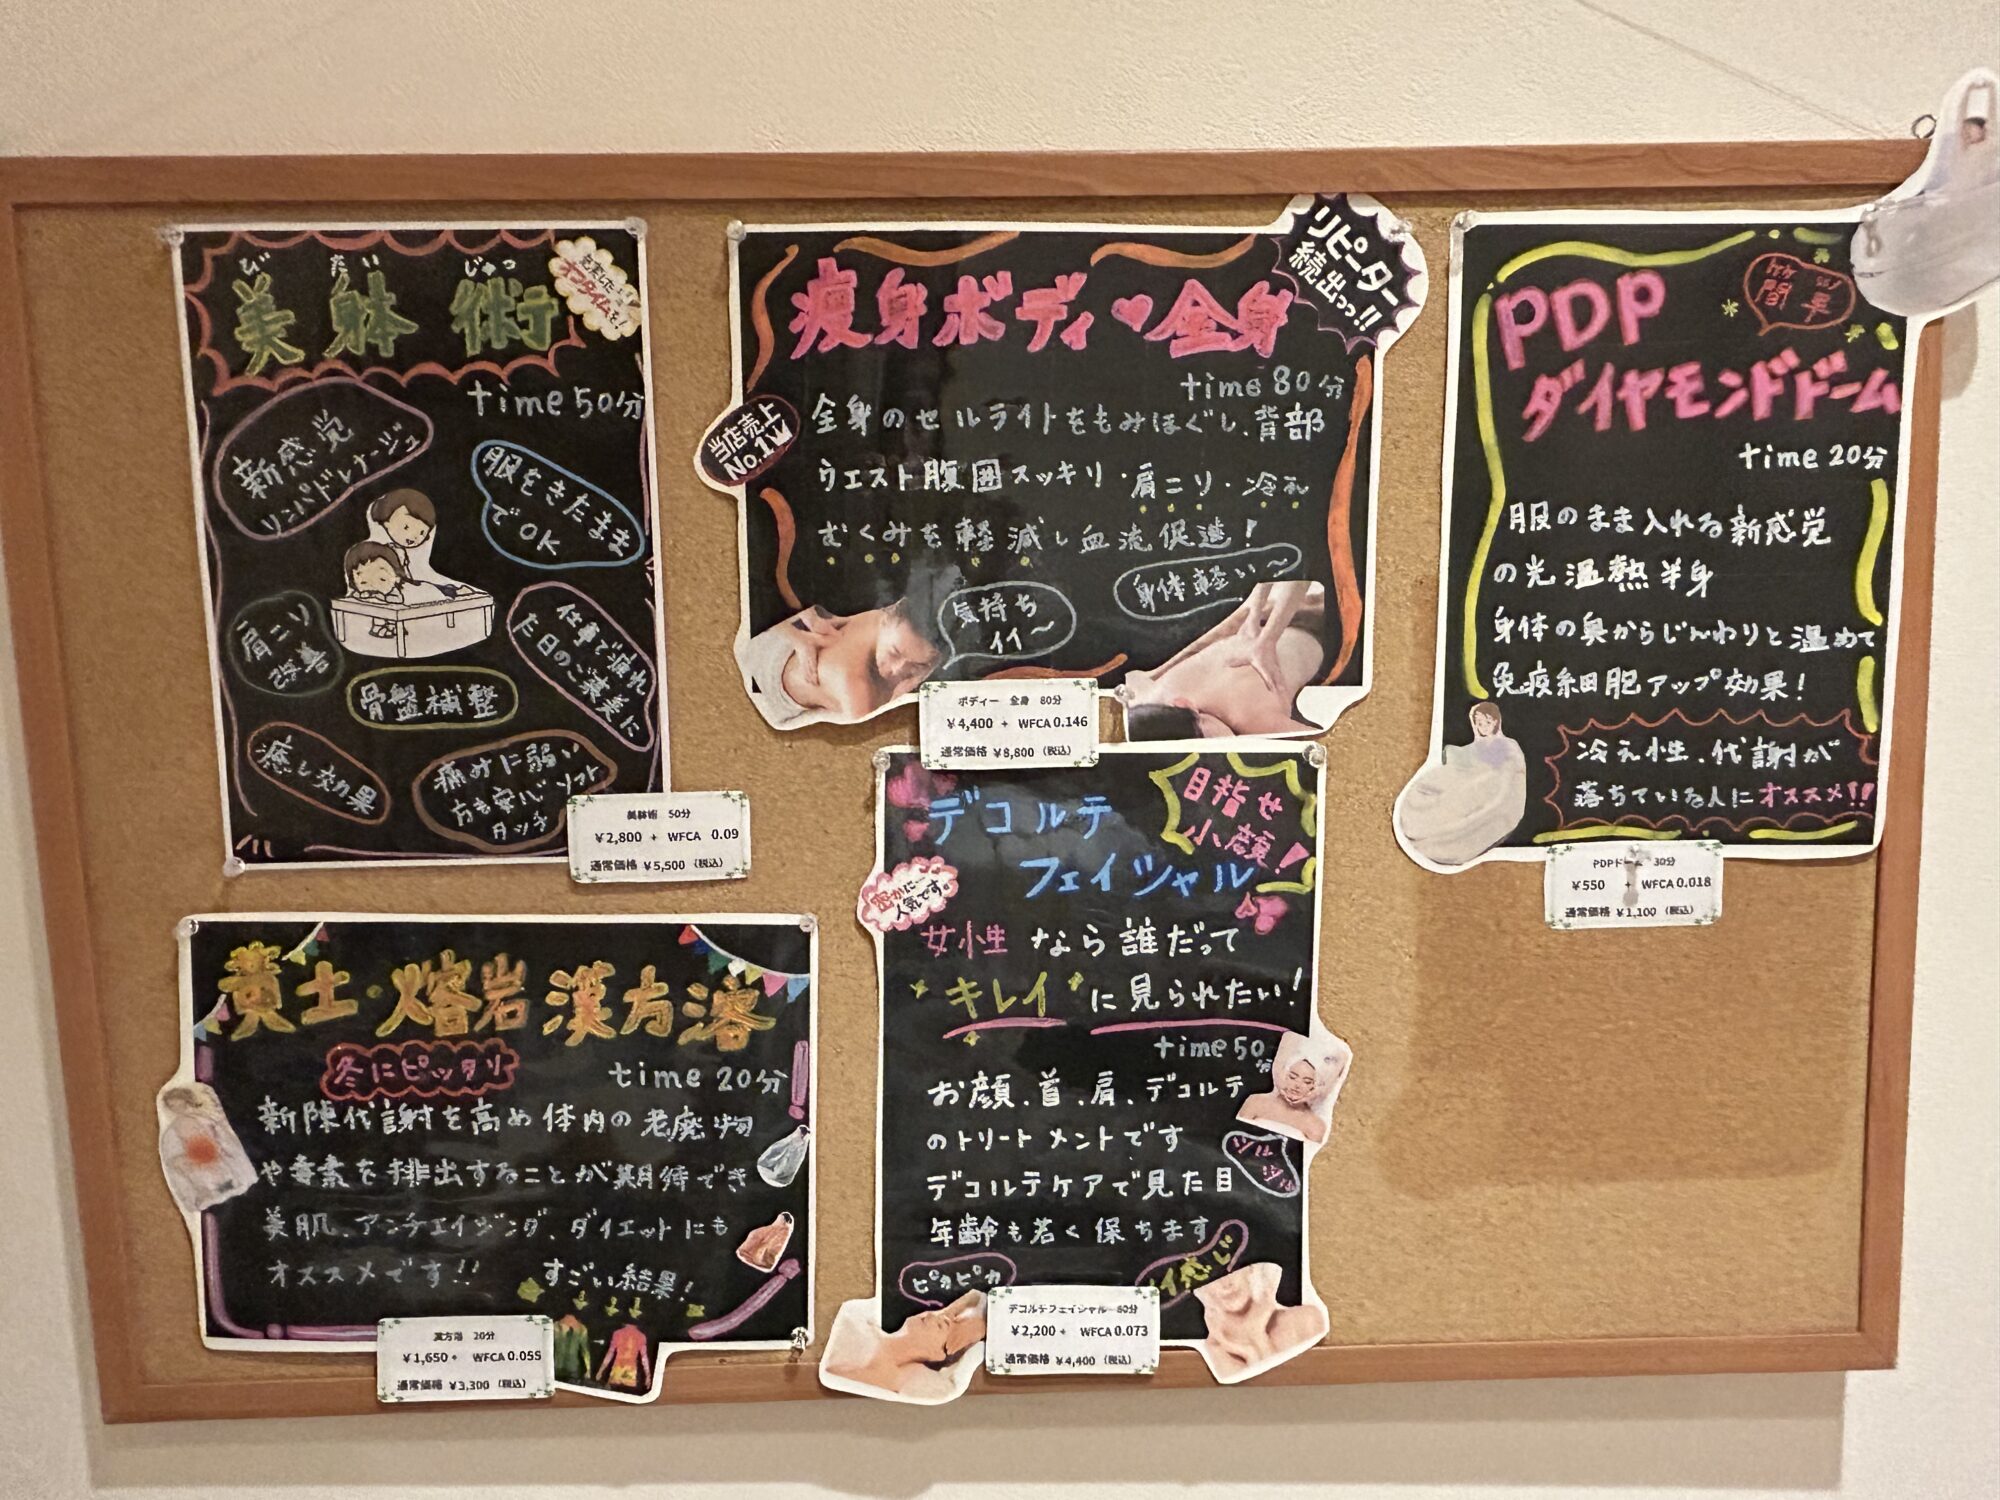 美躰術
びたいじゅつ
time 50分
新感覚
リンパドレナージュ
服をきたまま
でOK
肩コリ
改善
仕事で疲れ
た日のご褒美に
骨盤補整
癒し効果
痛みに弱い
方も安心ソフト
タッチ
美躰術 50分
¥2,800 + WFCA 0.09
通常価格 ¥5,500 (税込)
痩身ボディ♥全身
リピーター
続出っっ!!
time 80分
当店売上
No.1
全身のセルライトをもみほぐし、背部
ウエスト腹囲スッキリ・肩こり・冷え
むくみを軽減し血流促進!
気持ち
イイ〜
身体軽い〜
ボディー 全身 80分
¥4,400 + WFCA 0.146
通常価格 ¥8,800 (税込)
PDP
ダイヤモンドドーム
time 20分
服のまま入れる新感覚
の光温熱半身
身体の奥からじんわりと温めて
免疫細胞アップ効果!
冷え性、代謝が
落ちている人にオススメ!!
PDPドーム 30分
¥550 + WFCA 0.018
通常価格 ¥1,100 (税込)
黄土・熔岩漢方浴
冬にピッタリ
time 20分
新陳代謝を高め体内の老廃物
や毒素を排出することが期待でき
美肌、アンチエイジング、ダイエットにも
オススメです!!
すごい結果!
漢方浴 20分
¥1,650 + WFCA 0.055
通常価格 ¥3,300 (税込)
デコルテ
フェイシャル
目指せ
小顔!
密かに
人気です。
女性なら誰だって
"キレイ"に見られたい!
time 50分
お顔、首、肩、デコルテ
のトリートメントです
デコルテケアで見た目
年齢も若く保ちます
ピカピカ
イイ感じ
デコルテフェイシャル 50分
¥2,200 + WFCA 0.073
通常価格 ¥4,400 (税込)